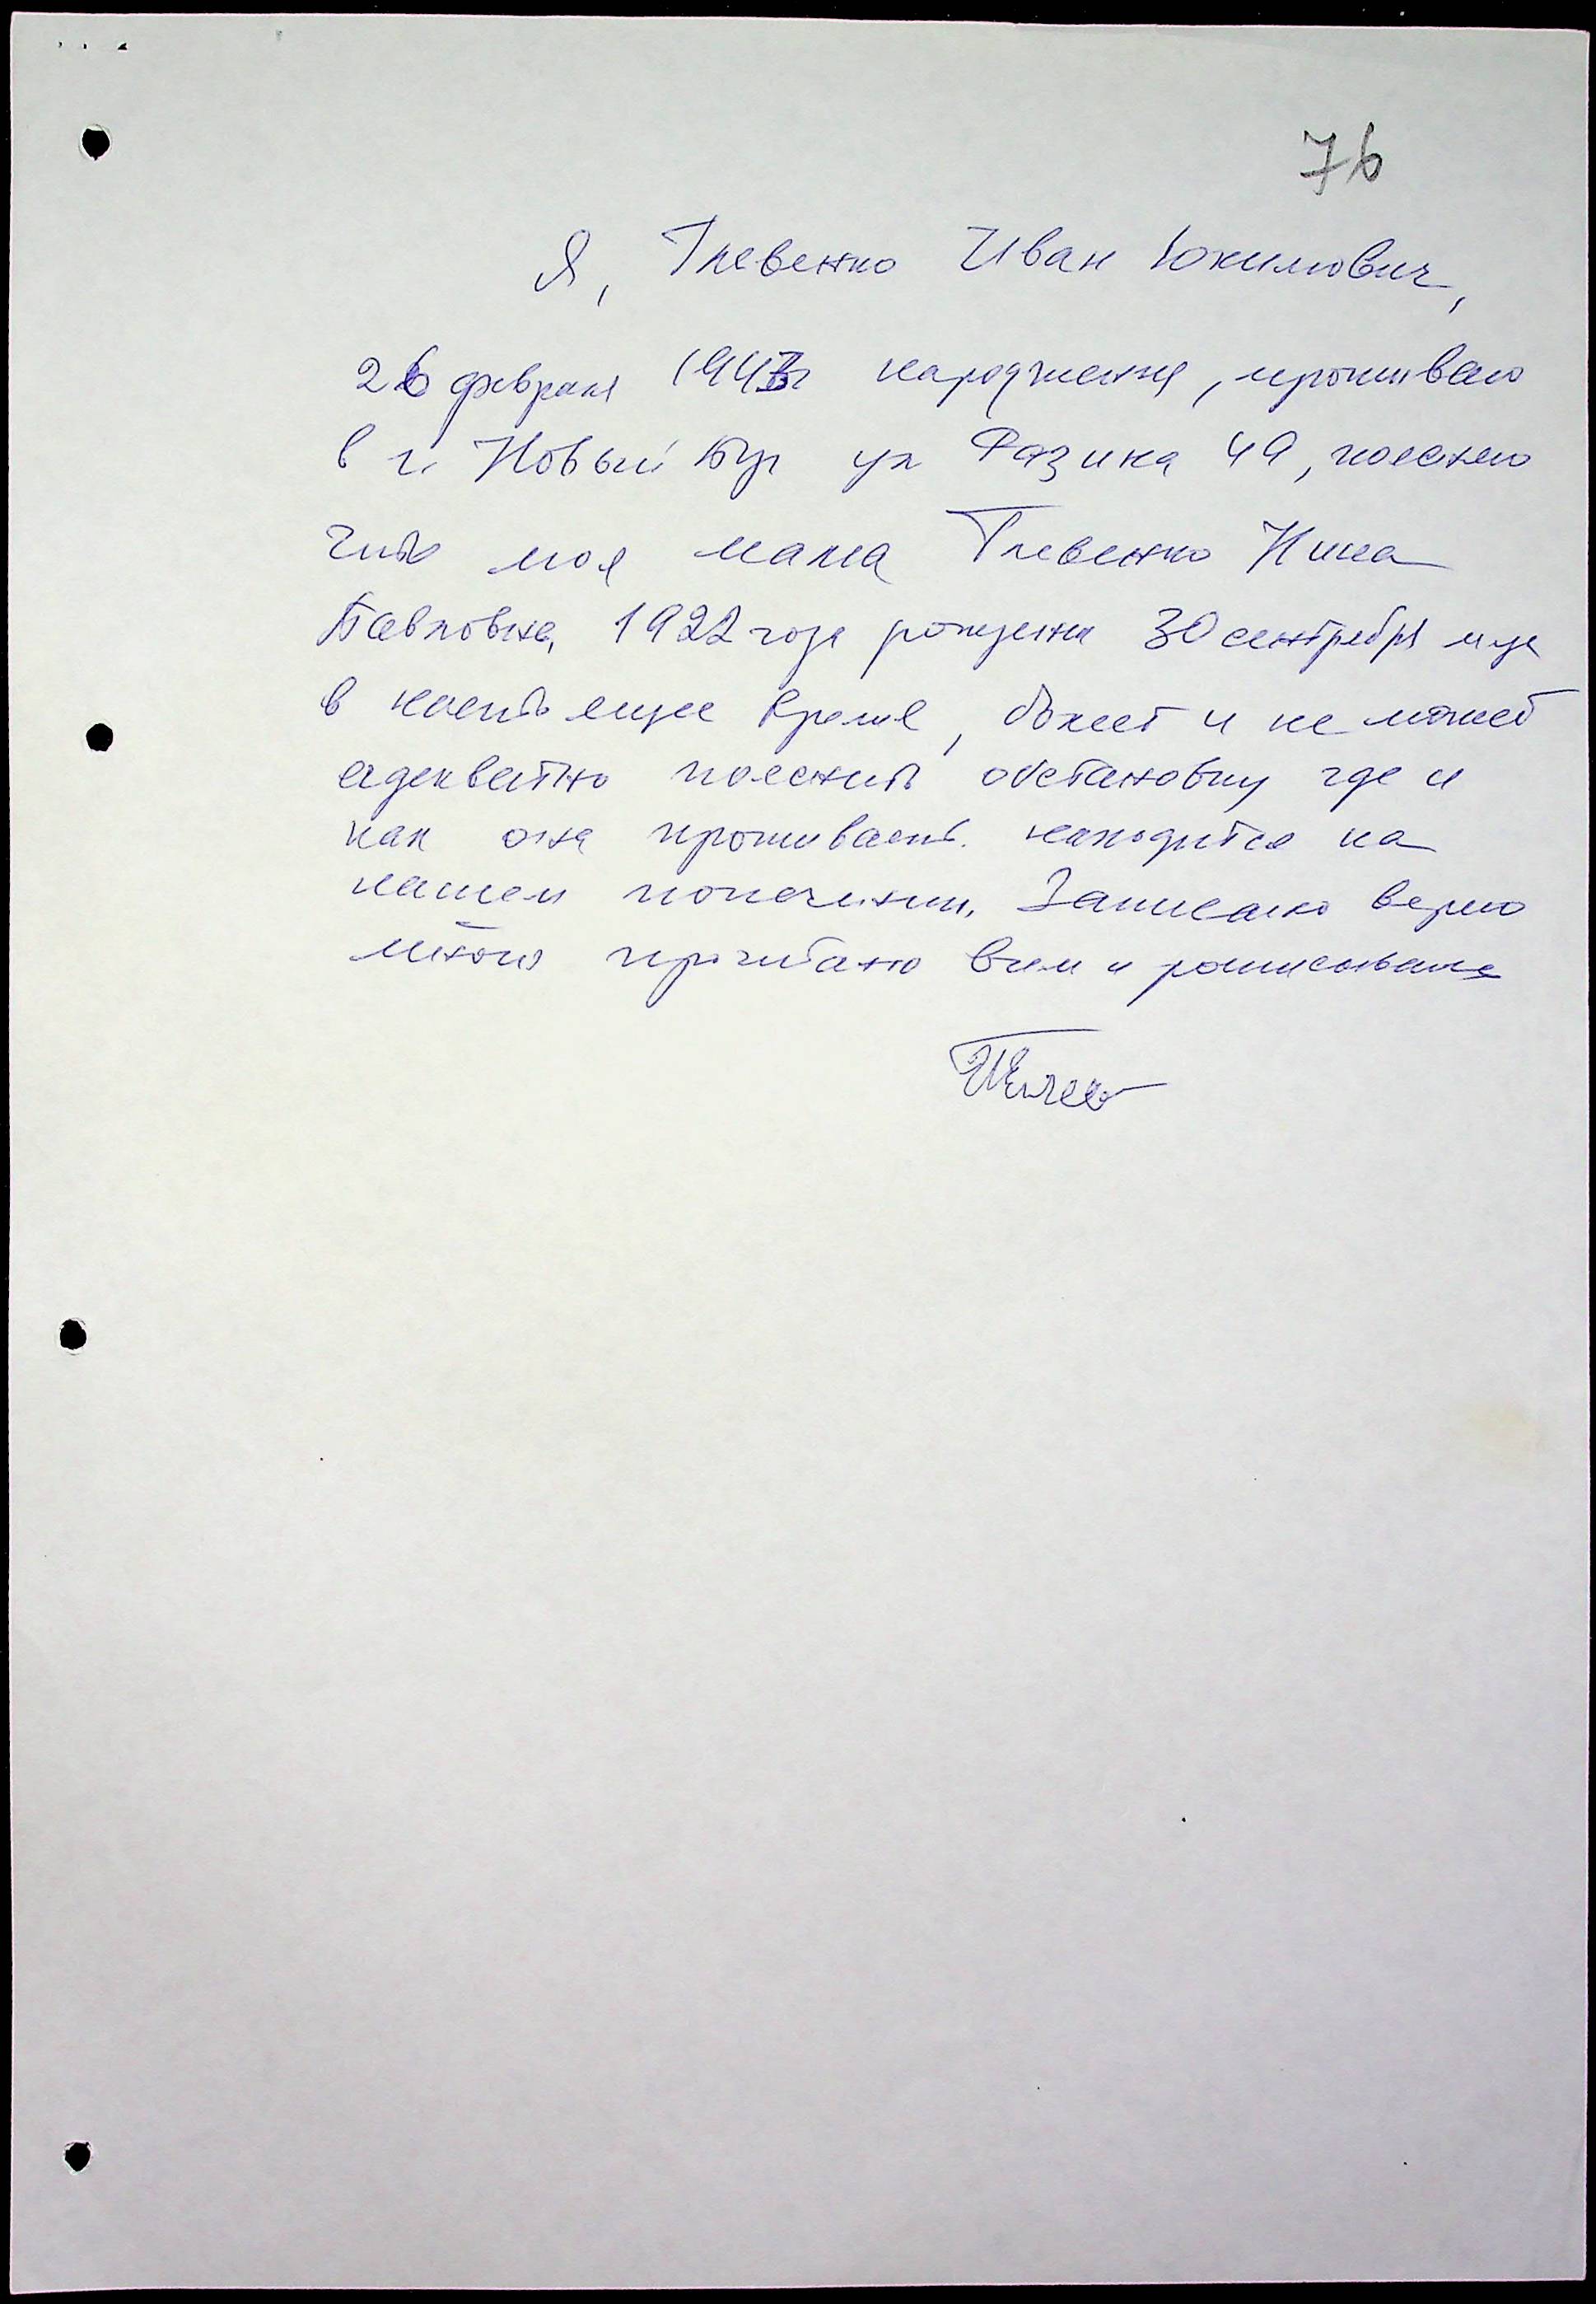 76
Я, Гневенко Иван Юхимович,
26 февраля 1943г народження, проживаю
в г. Новый Буг ул Разина 49, поясняю
что моя мама Гневенко Нина
Павловна, 1922 года рождения 30 сентребря м-ца
в настоящее время, болеет и не может
адекватно пояснить обстановку где и
как она проживаеть. находится на
нашем попечении. Записано верно
мною прочитано